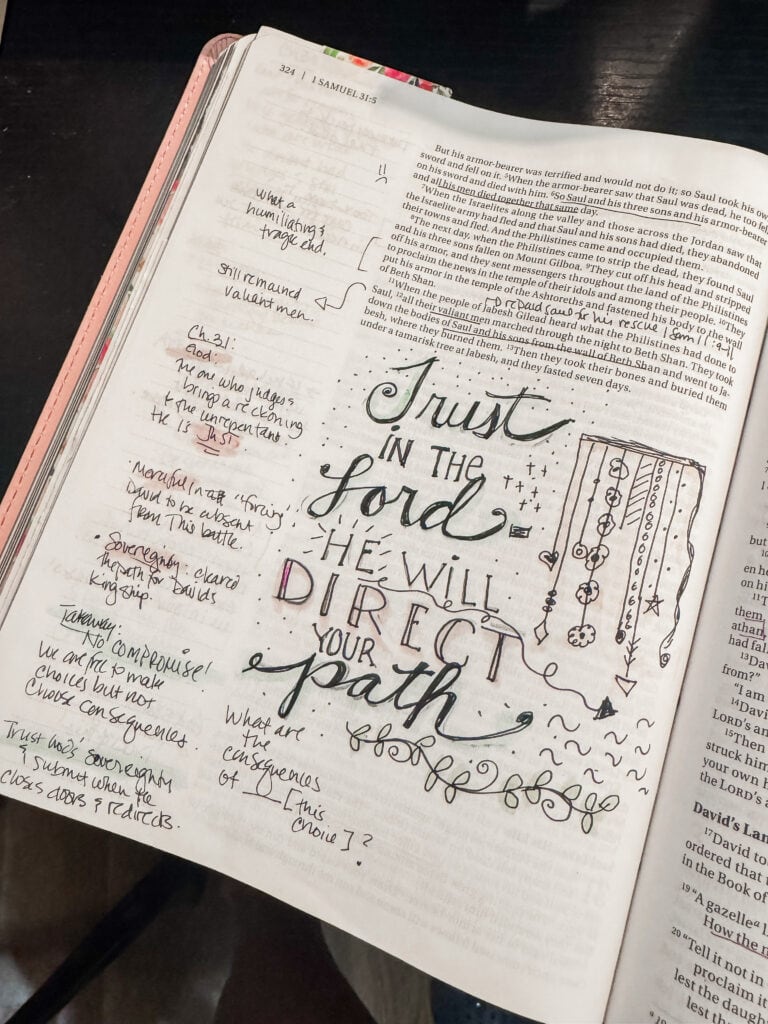 324 | 1 SAMUEL 31:5
But his armor-bearer was terrified and would not do it; so Saul took his ow
sword and fell on it. ⁵When the armor-bearer saw that Saul was dead, he too fell
on his sword and died with him. ⁶So Saul and his three sons and his armor-bearer
and all his men died together that same day.
⁷When the Israelites along the valley and those across the Jordan saw that
the Israelite army had fled and that Saul and his sons had died, they abandoned
their towns and fled. And the Philistines came and occupied them.
⁸The next day, when the Philistines came to strip the dead, they found Saul
and his three sons fallen on Mount Gilboa. ⁹They cut off his head and stripped
off his armor, and they sent messengers throughout the land of the Philistines
to proclaim the news in the temple of their idols and among their people. ¹⁰They
put his armor in the temple of the Ashtoreths and fastened his body to the wall
of Beth Shan.
¹¹When the people of Jabesh Gilead heard what the Philistines had done to
Saul, ¹²all their valiant men marched through the night to Beth Shan. They took
down the bodies of Saul and his sons from the wall of Beth Shan and went to Ja-
besh, where they burned them. ¹³Then they took their bones and buried them
under a tamarisk tree at Jabesh, and they fasted seven days.
repaid Saul for his rescue 1 Sam 11:
!!
what a
humiliating &
tragic end.
still remained
valiant men.
Ch. 31:
God:
The one who judges &
brings a reckoning
the unrepentant
He is Just
Merciful in "forcing"
David to be absent
from this battle.
• Sovereignty: cleared
the path for Davids
Kingship.
Takeaway:
NO COMPROMISE!
We are free to make
choices but not
choose consequences.
Trust God's sovereignty
& submit when He
closes doors & redirects.
Trust
IN THE
Lord
HE WILL
DIRECT
YOUR
path
What are
the
consequences
of ___ [this
choice]?
but
en he
on his
them,
athan,
had fall
¹³Davi
from?"
"I am
¹⁴Davi
LORD's an
¹⁵Then
struck him
your own
the LORD's a
David's Lan
¹⁷David to
ordered that
in the Book of
¹⁹"A gazelleᵃ l
How the m
²⁰"Tell it not in
proclaim it
lest the daugh
lest the